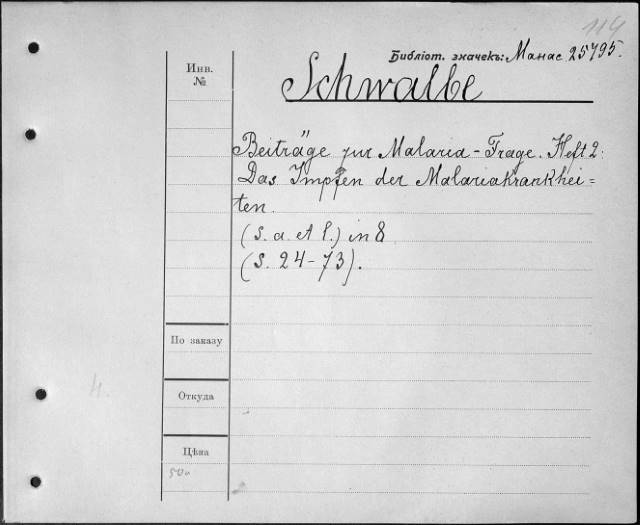 114
Библіот. значекъ: Манас 25795.
Инв.
№
Schwalbe
Beiträge zur Malaria-Frage. Heft 2:
Das Impfen der Malariakrankhei=
ten.
(S. a. et l.) in 8
(S. 24-73).
По заказу
4.
Откуда
Цѣна